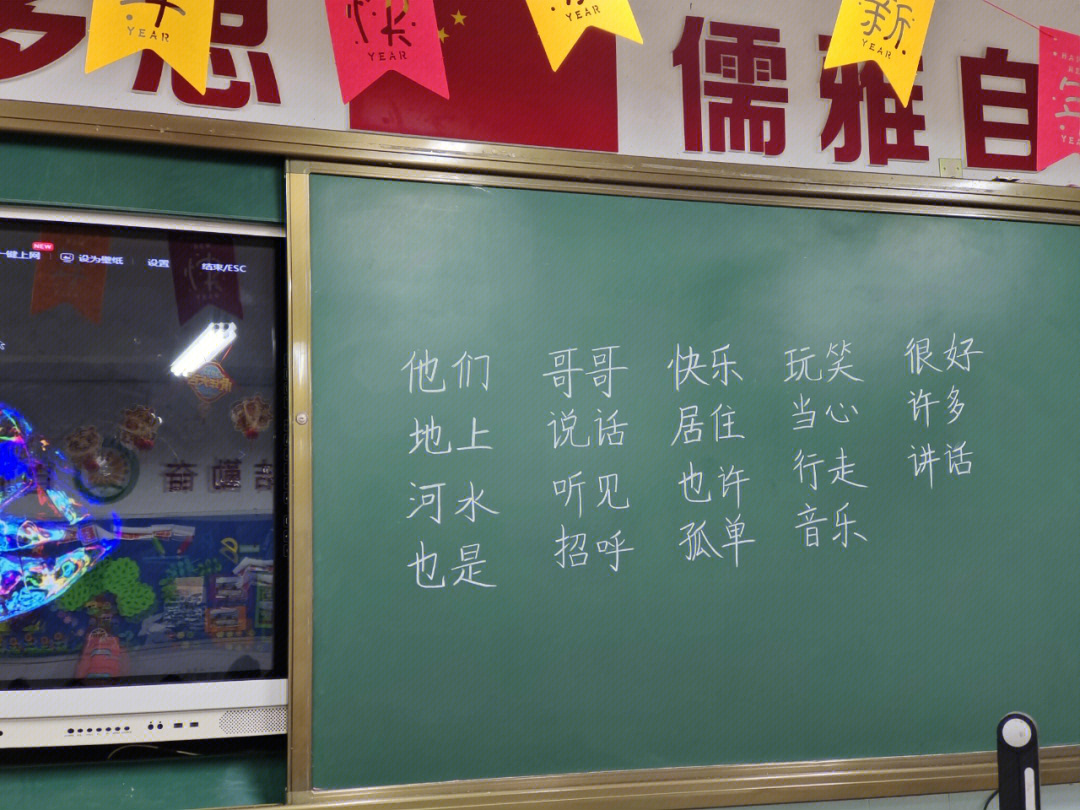 思
YEAR
快
YEAR
YEAR
新
YEAR
儒雅自
NEW
一键上网 设为壁纸 设置 结束/ESC
他们 哥哥 快乐 玩笑 很好
地上 说话 居住 当心 许多
河水 听见 也许 行走 讲话
也是 招呼 孤单 音乐